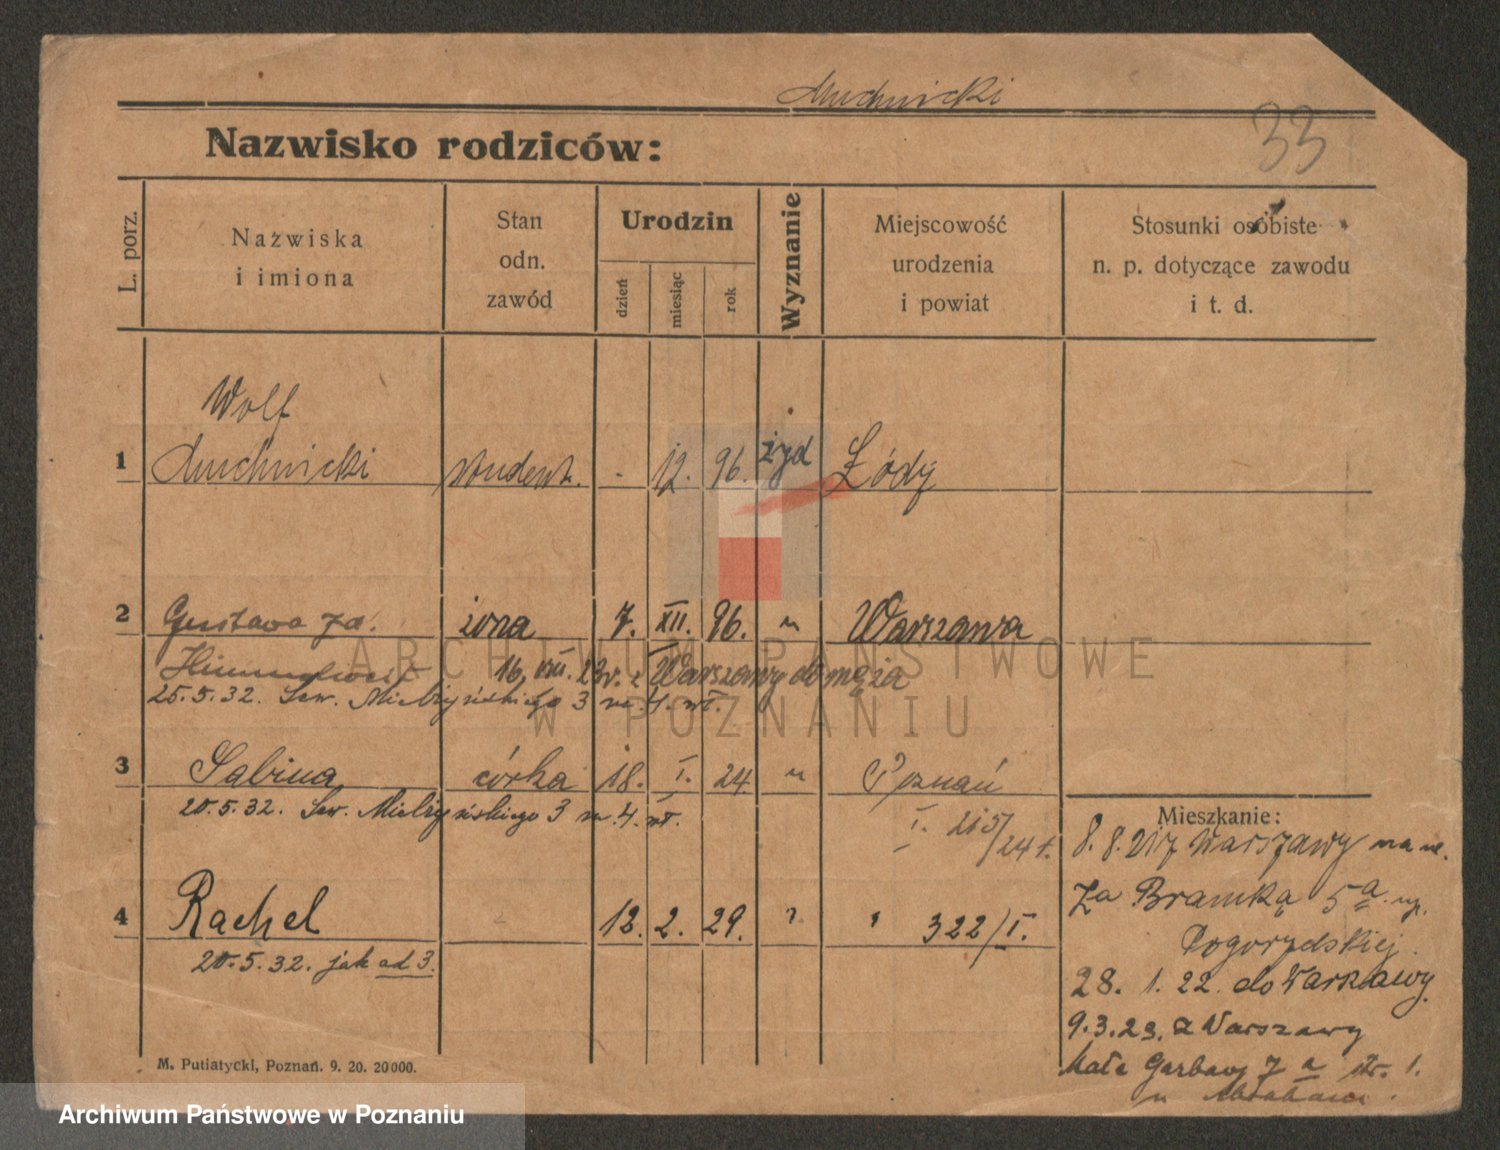 Muchnicki
33
Nazwisko rodziców:
L. porz.
Nazwiska
i imiona
Stan
odn.
zawód
Urodzin
dzień
miesiąc
rok
Wyznanie
Miejscowość
urodzenia
i powiat
Stosunki osobiste
n. p. dotyczące zawodu
i t. d.
Wolf
1 Muchnicki student. - 12. 96. żyd Łódź
2 Gustawa żona 7. XII. 96. " Warszawa
16. VIII. z Warszawy do męża
25.5.32. Sew. Mielżyńskiego 3 m. 4.
3 Sabina córka 18. I. 24 " Poznań
20.5.32. Sew. Mielżyńskiego 3 m. 4.
I. 215/24
4 Rachel 12. 2. 29. " " 322/I.
20.5.32. jak ad 3.
Mieszkanie:
8.8.21 z Warszawy na
Za Bramką 5a
28. 1. 22. do Warszawy
9.3.23. z Warszawy
Małe Garbary 7a
M. Putiatycki, Poznań. 9. 20. 20000.
ARCHIWUM PAŃSTWOWE
W POZNANIU
Archiwum Państwowe w Poznaniu